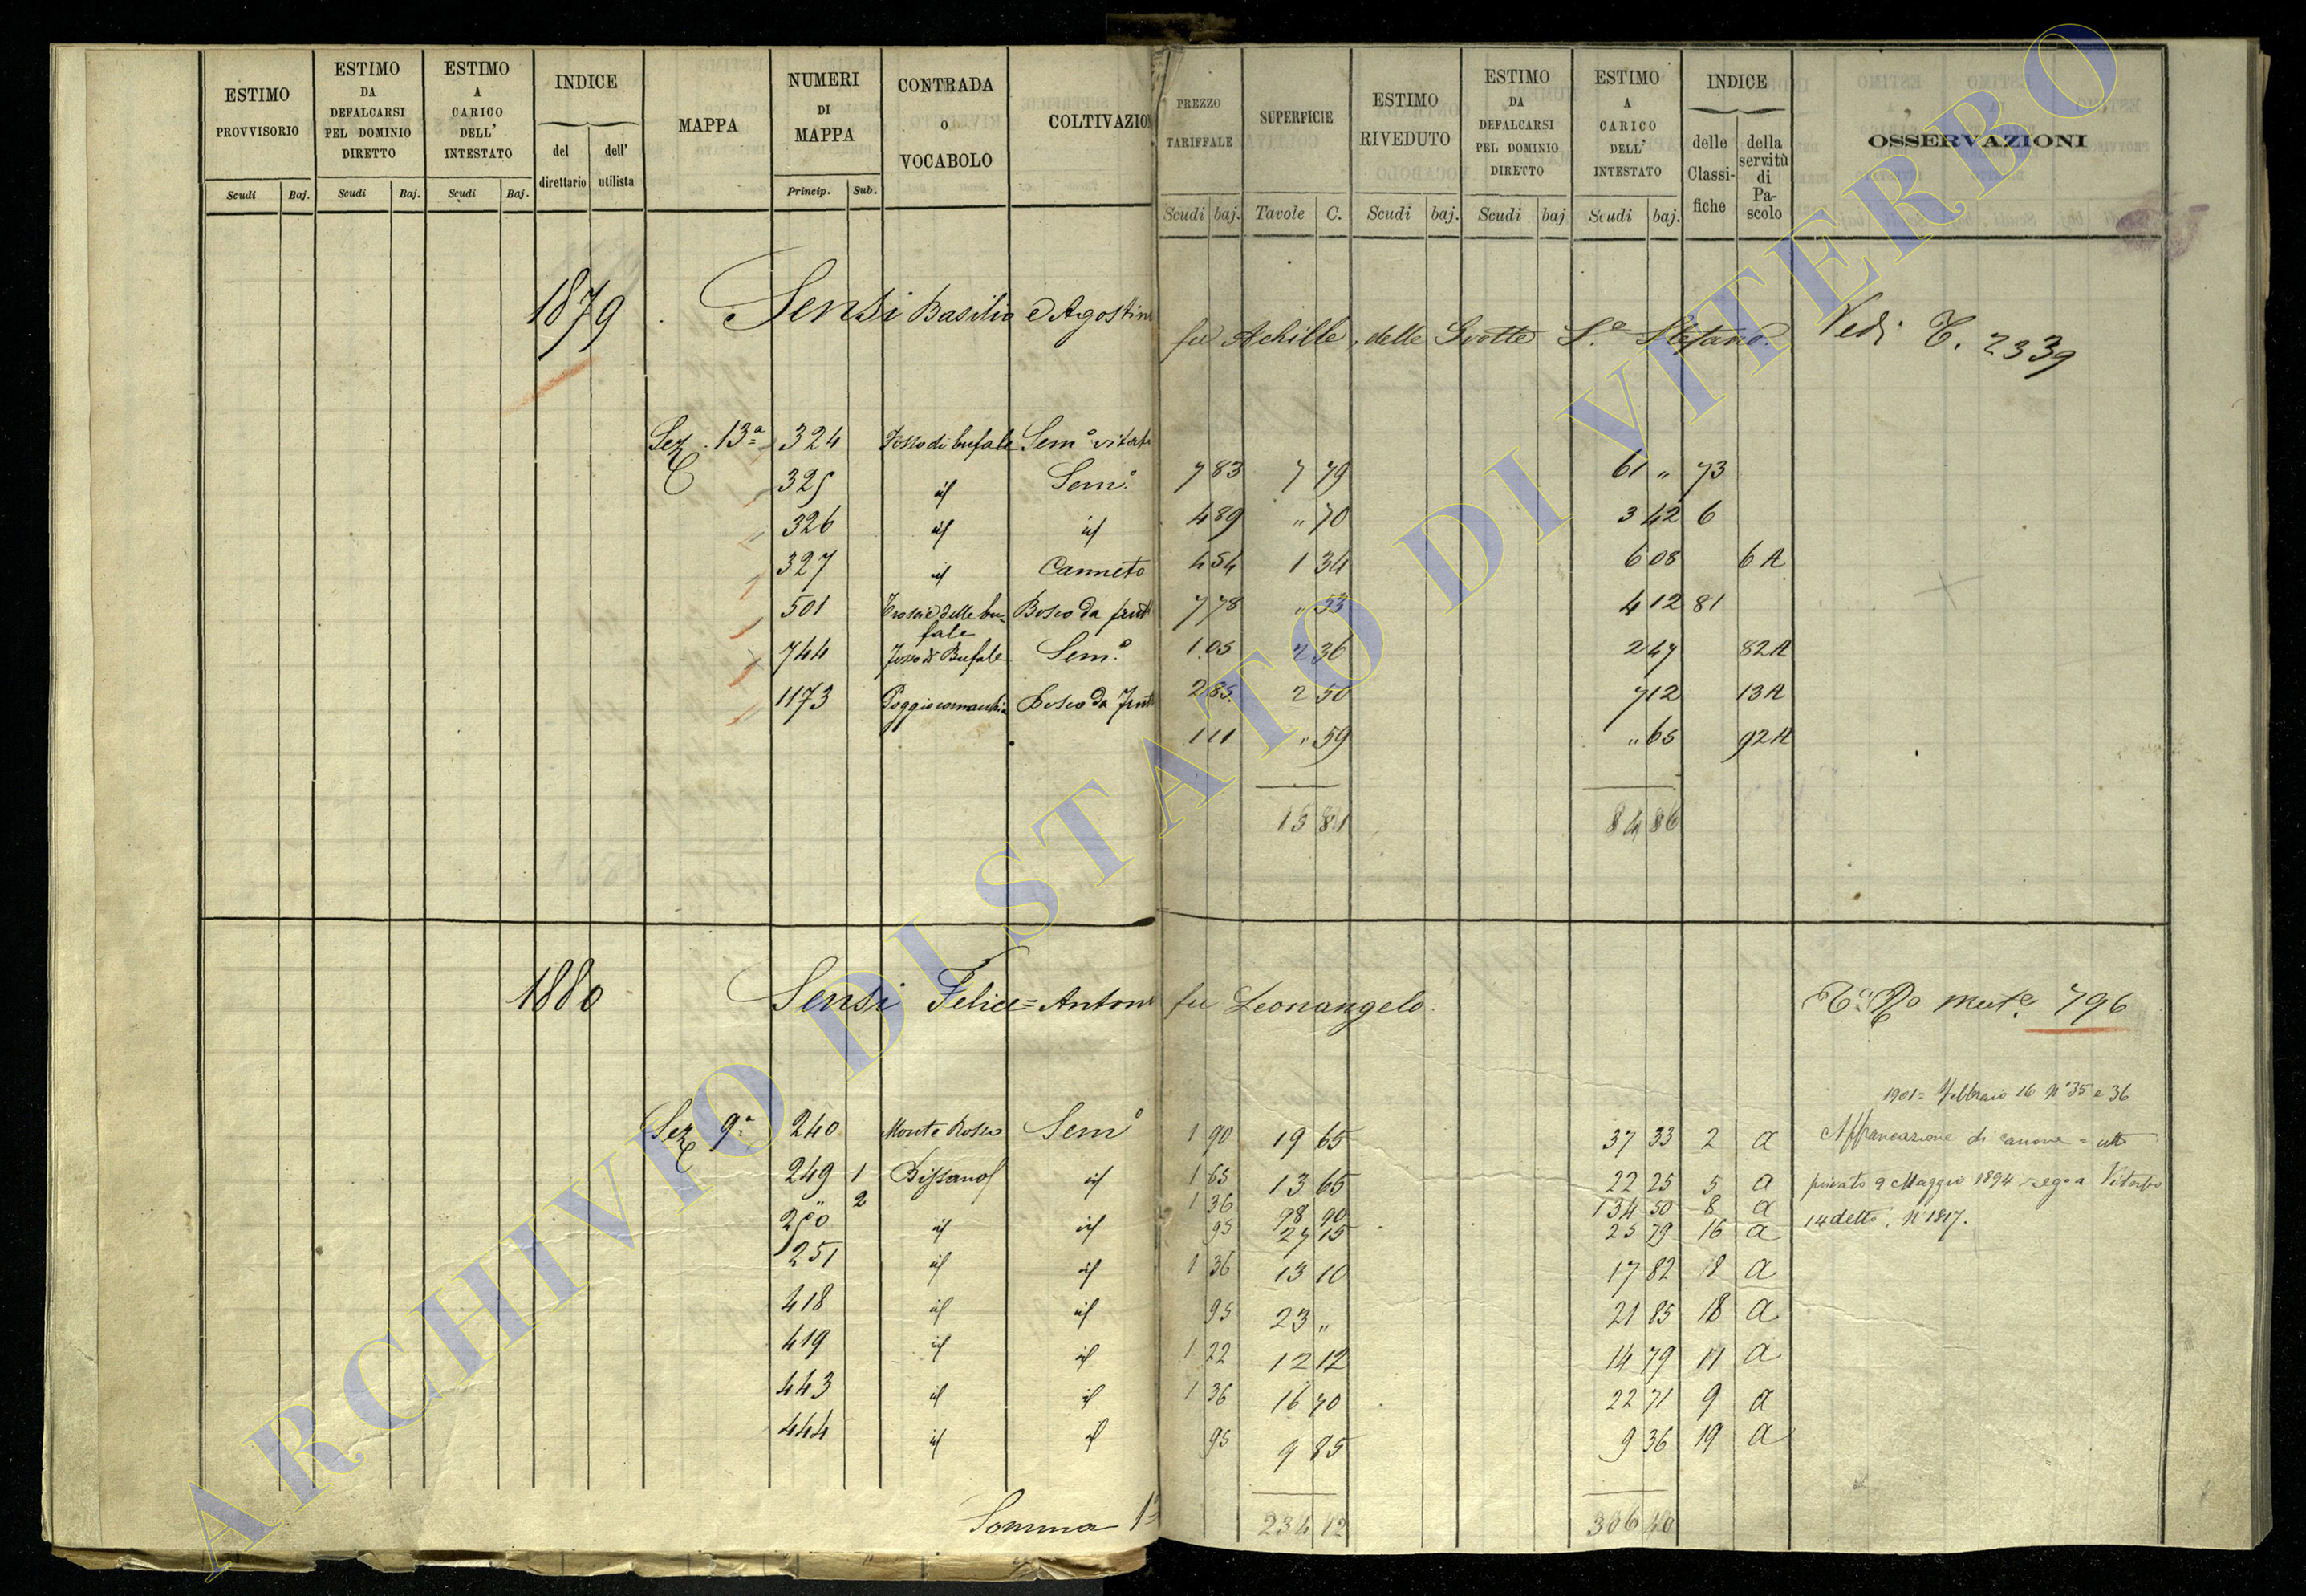 ESTIMO PROVVISORIO Scudi Baj.
ESTIMO DA DEFALCARSI PEL DOMINIO DIRETTO Scudi Baj.
ESTIMO A CARICO DELL' INTESTATO Scudi Baj.
INDICE del direttario dell' utilista
MAPPA
NUMERI DI MAPPA Princip. Sub.
CONTRADA O VOCABOLO
COLTIVAZIO
PREZZO TARIFFALE Scudi baj.
SUPERFICIE Tavole C.
ESTIMO RIVEDUTO Scudi baj.
ESTIMO DA DEFALCARSI PEL DOMINIO DIRETTO Scudi baj
ESTIMO A CARICO DELL' INTESTATO Scudi baj.
INDICE delle Classifiche della servitù di Pascolo
OSSERVAZIONI
1879 Sensi Basilio e Agostin fu Achille, delle Grotte S.o Stefano. Vedi C. 2339
Sez. 13a 324 Fosso di bufale Sem.o vitat 7 83 7 79 61 " 73
C 325 id Sem.o 4 89 " 70 3 42 6
326 id id 4 54 1 34 6 08 6 A
327 id Canneto 7 78 " 53 4 12 81
501 delle bufale Bosco da frutt 1 05 2 36 2 47 82 A
744 Fosso di Bufale Sem.o 2 85 2 50 7 12 13 A
1173 Bosco da frutt 1 11 " 59 " 65 92 A
15 81 84 86
1880 Sensi Felice=Anton fu Leonangelo. mut.e 796
1901= Febbraio 16 No 35 e 36
Sez 9a 240 Monte Rosso Sem.o 1 90 19 65 37 33 2 a Affrancazione di canone = atto
249 1 id 1 65 13 65 22 25 5 a privato 9 Maggio 1894 reg. a Viterbo
" 2 1 36 98 90 134 50 8 a
250 id id 95 27 15 25 79 16 a 14 detto. No 1817.
251 id id 1 36 13 10 17 82 8 a
418 id id 95 23 " 21 85 18 a
419 id id 1 22 12 12 14 79 11 a
443 id id 1 36 16 70 22 71 9 a
444 id id 95 9 85 9 36 19 a
Somma 1a 234 12 306 40
ARCHIVIO DI STATO DI VITERBO